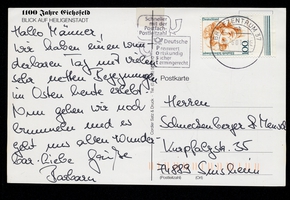 1100 Jahre Eichsfeld
BLICK AUF HEILIGENSTADT
Hallo Männer!
Wir haben einen wun-
derbaren Tag mit vielen
sehr netten Begegnungen
im Osten heute erlebt.
Nun gehen wir noch
brummeln und es
geht uns allen wunder-
bar. Liebe Grüße
Barbara
Schneller
mit der
Postfach-
Postleitzahl
Deutsche
Postkarte
Herren
Schneckenberger & Mensch
Knopfzstr. 35
74889 Sinsheim
100